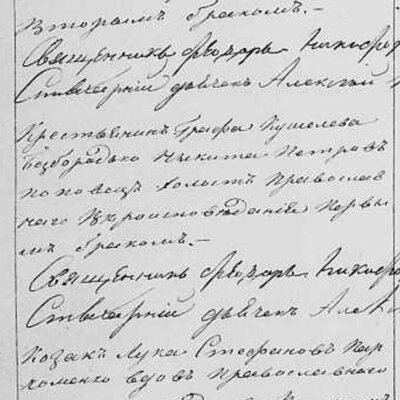 вторымъ бракомъ.—
Священникъ Ѳеодоръ Никифор
дьячекъ Алексій
Крестьянинъ Графа Кушелева
Безбородько Никита Петровъ
холостъ православ
наго вѣроисповѣданія первы
мъ бракомъ.—
Священникъ Ѳеодоръ Никифор
дьячекъ Алек
Козакъ Лука Стефановъ Пар
хоменко вдовъ православнаго